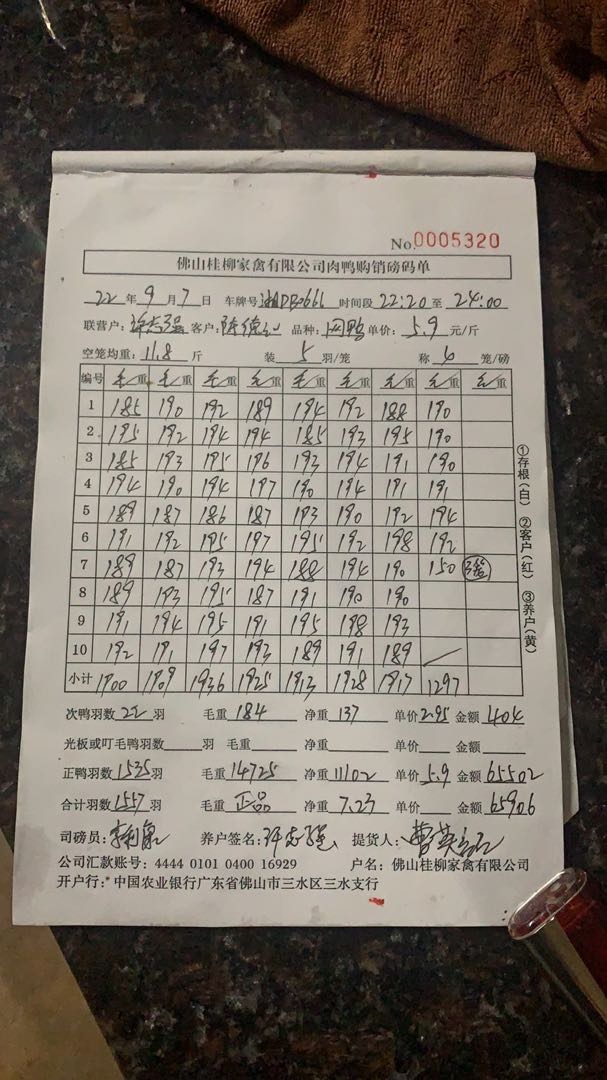 No.0005320
佛山桂柳家禽有限公司肉鸭购销磅码单
22年9月7日 车牌号湘DB0661 时间段22:20至24:00
联营户: 客户:陈德 品种: 鸭 单价:5.9元/斤
空笼均重:11.8斤 装5羽/笼 称6笼/磅
编号 毛/重 毛/重 毛/重 毛/重 毛/重 毛/重 毛/重 毛/重 /重
1 185 190 192 189 194 192 188 190
2 195 192 194 194 185 193 195 190
3 185 193 195 196 193 194 191 190
4 194 190 194 197 190 194 191 191
5 189 187 186 187 193 190 192 194
6 191 192 195 197 195 192 198 192
7 189 187 193 194 188 194 190 150
8 189 193 195 187 191 190 190
9 191 194 195 191 195 198 193
10 192 191 197 193 189 191 189
小计 1900 1909 1936 1925 1913 1928 1917 1297
次鸭羽数22羽 毛重184 净重137 单价2.95 金额404
光板或叮毛鸭羽数 羽 毛重 净重 单价 金额
正鸭羽数1535羽 毛重14725 净重11102 单价5.9 金额65502
合计羽数1557羽 毛重正品 净重7.23 单价 金额65906
司磅员: 养户签名: 提货人:
公司汇款账号: 4444 0101 0400 16929 户名: 佛山桂柳家禽有限公司
开户行: 中国农业银行广东省佛山市三水区三水支行
①存根(白) ②客户(红) ③养户(黄)